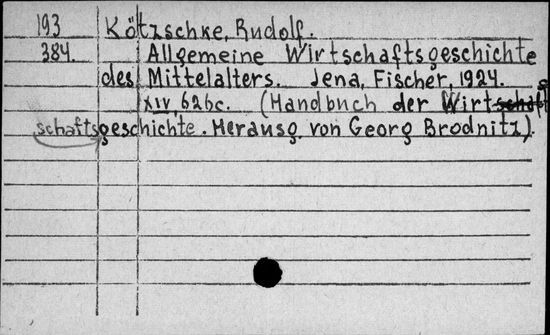 193 Kötzschke, Rudolf.
384. Allgemeine Wirtschaftsgeschichte
des Mittelalters. Jena, Fischer, 1924.
XIV, 626c. (Handbuch der Wirt
schaftsgeschichte. Herausg. von Georg Brodnitz).